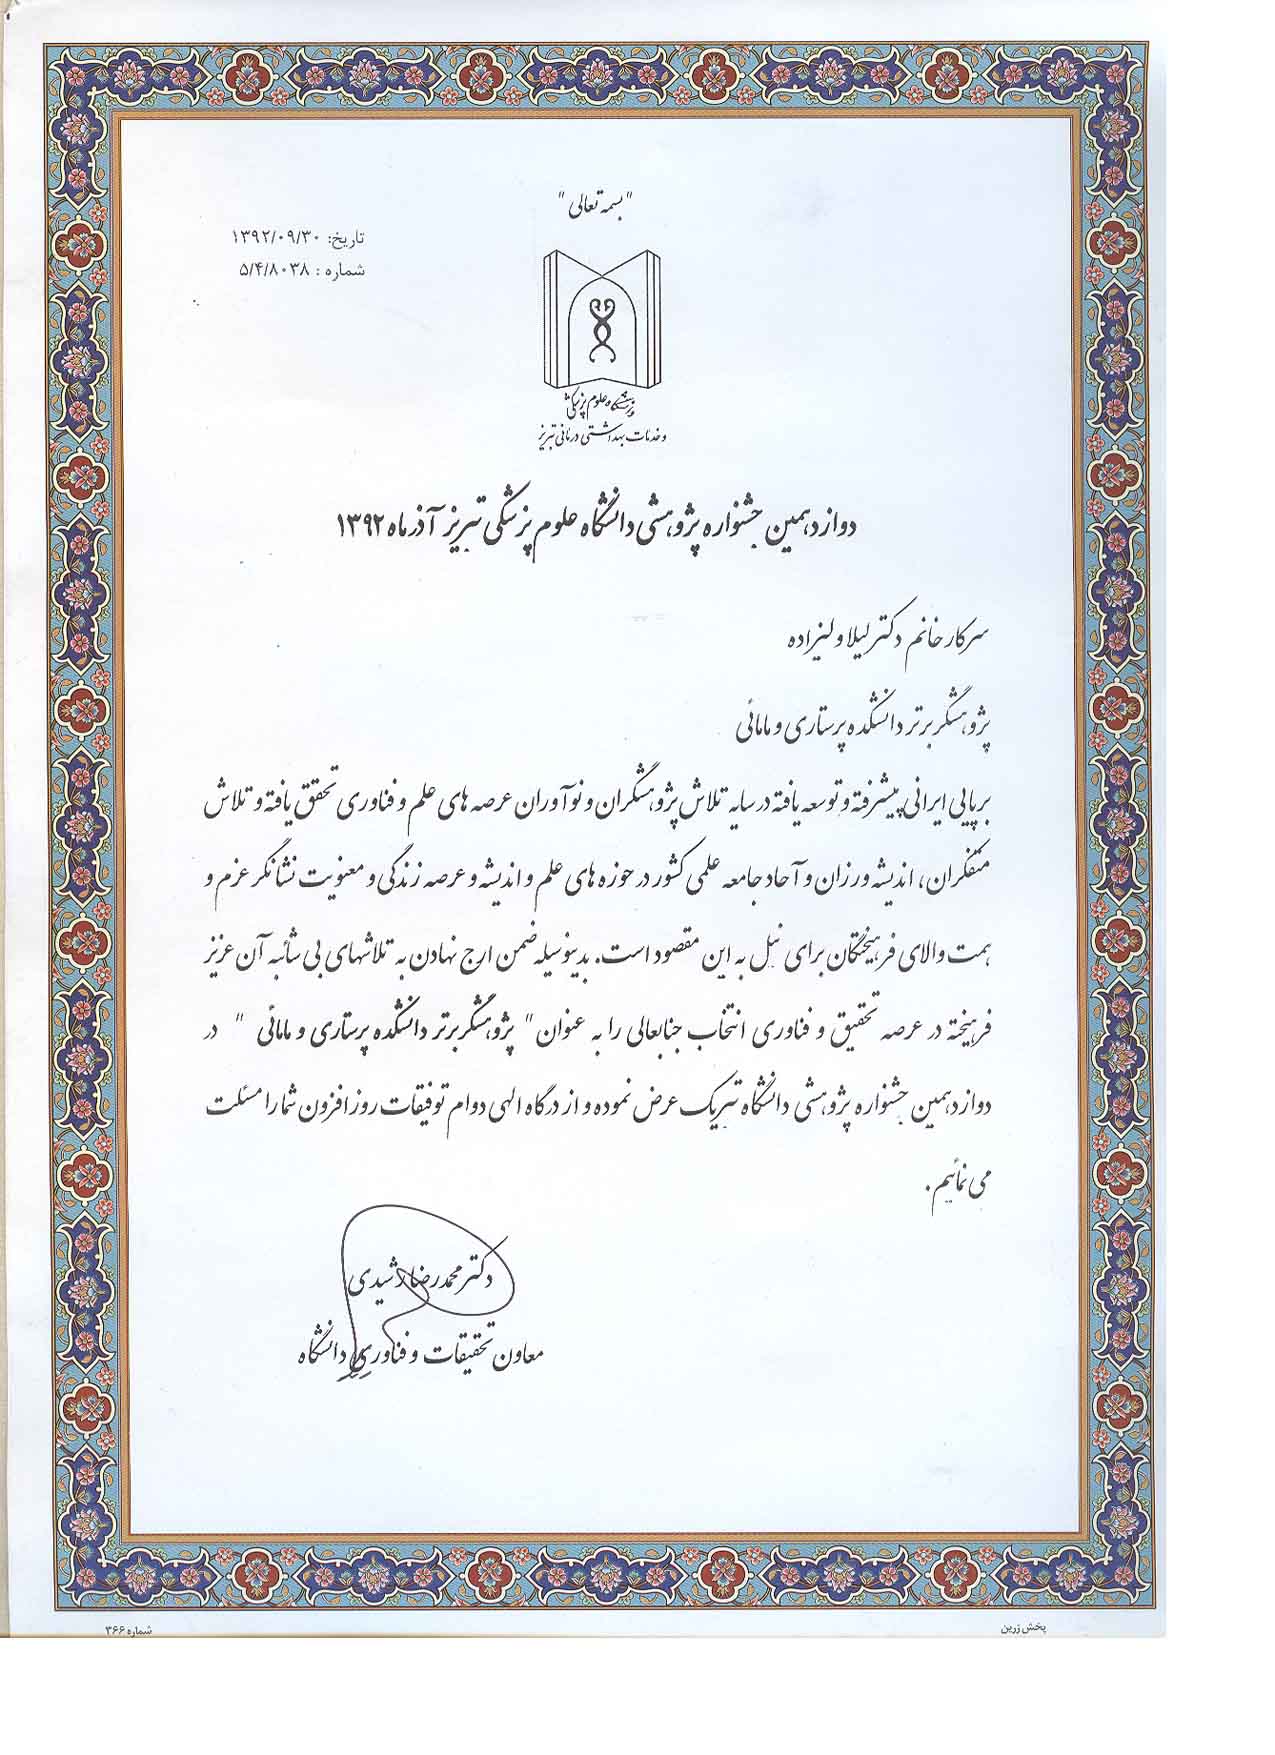 "بسمه تعالی"
تاریخ: ۱۳۹۲/۰۹/۳۰
شماره : ۵/۴/۸۰۳۸
دانشگاه علوم پزشکی
و خدمات بهداشتی درمانی تبریز
دوازدهمین جشنواره پژوهشی دانشگاه علوم پزشکی تبریز آذر ماه ۱۳۹۲
سرکار خانم دکتر لیلا ولیزاده
پژوهشگر برتر دانشکده پرستاری و مامائی
برپایی ایرانی پیشرفته و توسعه یافته در سایه تلاش پژوهشگران و نوآوران عرصه های علم و فناوری تحقق یافته و تلاش
متفکران، اندیشه ورزان و آحاد جامعه علمی کشور در حوزه های علم و اندیشه و عرصه زندگی و معنویت نشانگر عزم و
همت والای فرهیختگان برای نیل به این مقصود است. بدینوسیله ضمن ارج نهادن به تلاشهای بی شائبه آن عزیز
فرهیخته در عرصه تحقیق و فناوری انتخاب جنابعالی را به عنوان " پژوهشگر برتر دانشکده پرستاری و مامائی " در
دوازدهمین جشنواره پژوهشی دانشگاه تبریک عرض نموده و از درگاه الهی دوام توفیقات روز افزون شما را مسئلت
می نمائیم.
دکتر محمدرضا رشیدی
معاون تحقیقات و فناوری دانشگاه
پخش زرین
شماره ۳۶۶